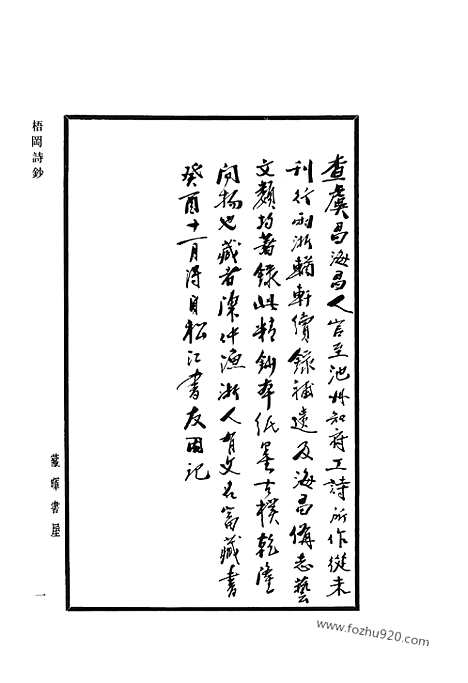 梧岡詩鈔
查虞昌海昌人官至池州知府工詩所作從未
刊行兩浙輶軒續錄補遺及海昌備志藝
文類均著錄此精鈔本紙墨古樸乾隆
間物也藏者陳仲漁浙人有文名富藏書
癸酉十一月得自松江書友因記
蒙暉書屋
一
www.fozhu920.com